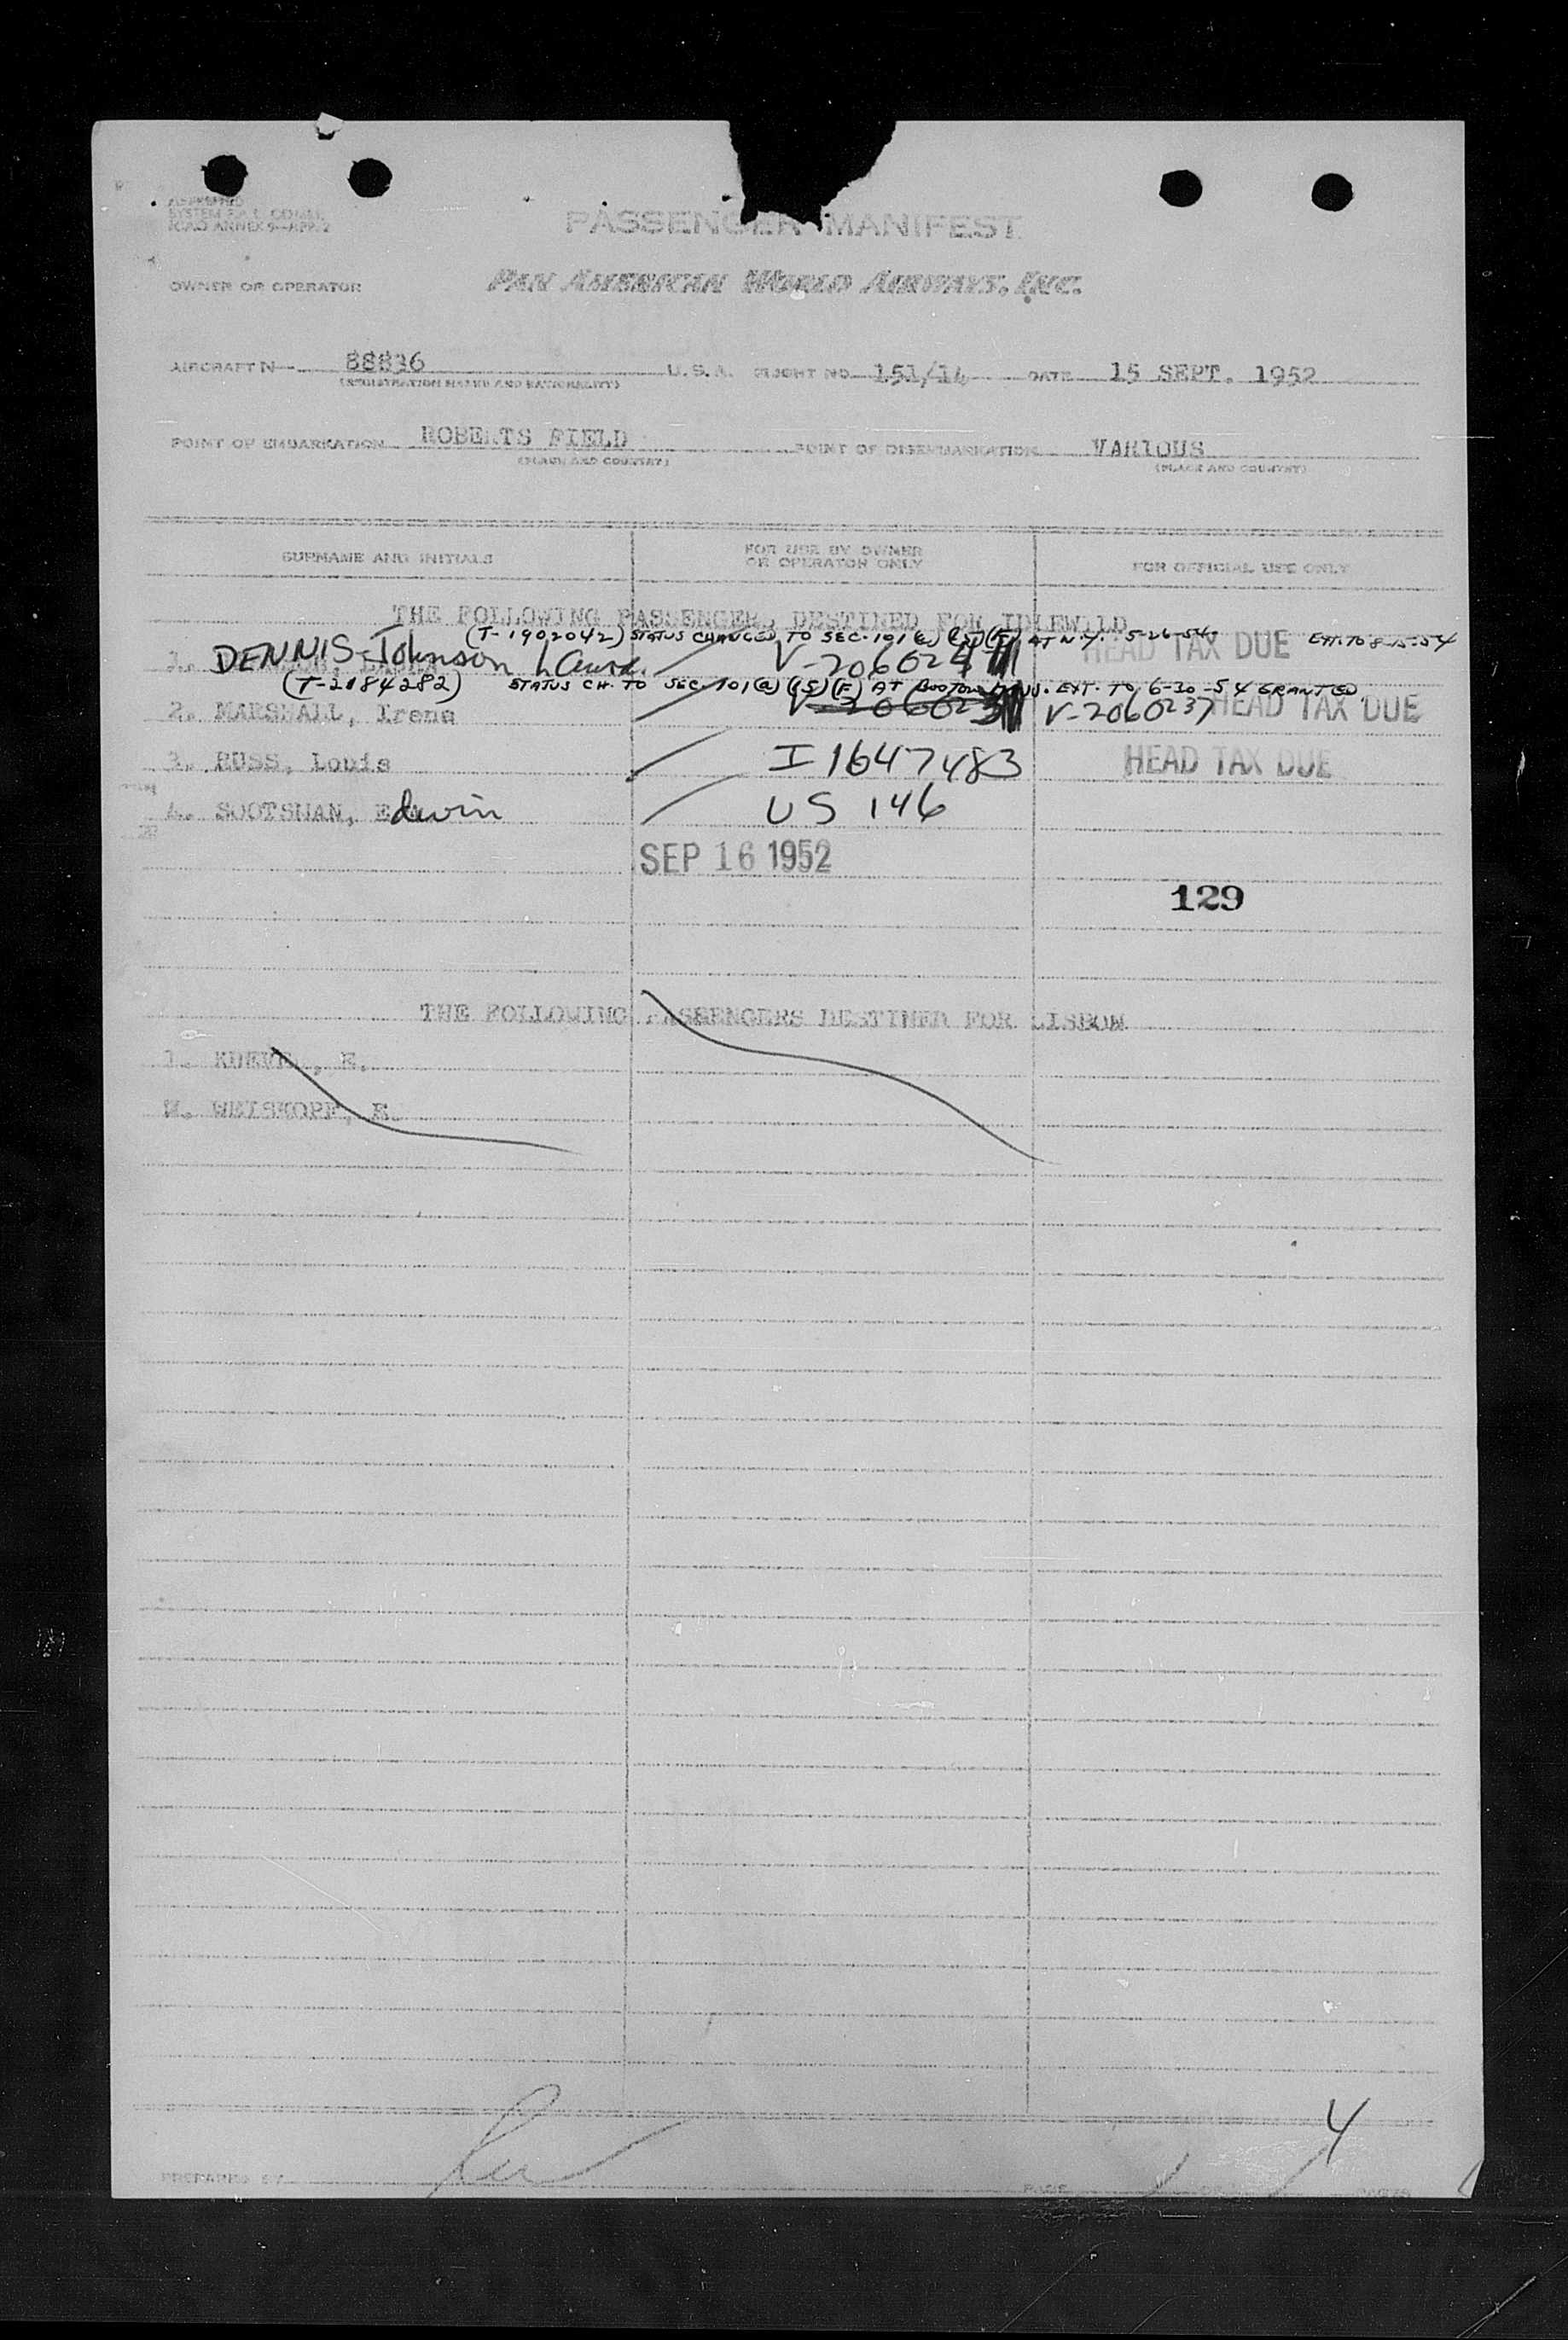 PASSENGER MANIFEST
ICAO ANNEX 9—APP. 2
OWNER OR OPERATOR PAN AMERICAN WORLD AIRWAYS, INC.
AIRCRAFT N- 88836 U.S.A. FLIGHT NO. 151/14 DATE 15 SEPT. 1952
(REGISTRATION MARKS AND NATIONALITY)
POINT OF EMBARKATION ROBERTS FIELD POINT OF DISEMBARKATION VARIOUS
(PLACE AND COUNTRY) (PLACE AND COUNTRY)
SURNAME AND INITIALS FOR USE BY OWNER OR OPERATOR ONLY FOR OFFICIAL USE ONLY
THE FOLLOWING PASSENGER, DESTINED FOR IDLEWILD
(T-1902042) STATUS CHANGED TO SEC. 101 (a) (15) (F) AT N.Y. 5-26-54 EXT. TO 8-15-54
1. DENNIS-Johnson V-206024 HEAD TAX DUE
(T-2184282) STATUS CH. TO SEC 101 (a) (15) (F) AT EXT. TO 6-30-54 GRANTED
2. MARSHALL, Irene V-206023 V-2060237 HEAD TAX DUE
3. RUSS, Louis I 1647483 HEAD TAX DUE
4. SOOTSMAN, Edwin US 146
SEP 16 1952
129
THE FOLLOWING PASSENGERS DESTINED FOR LISBON
1. E.
2. WEISKOPF, E.
4
PREPARED BY PAGE OF PAGES